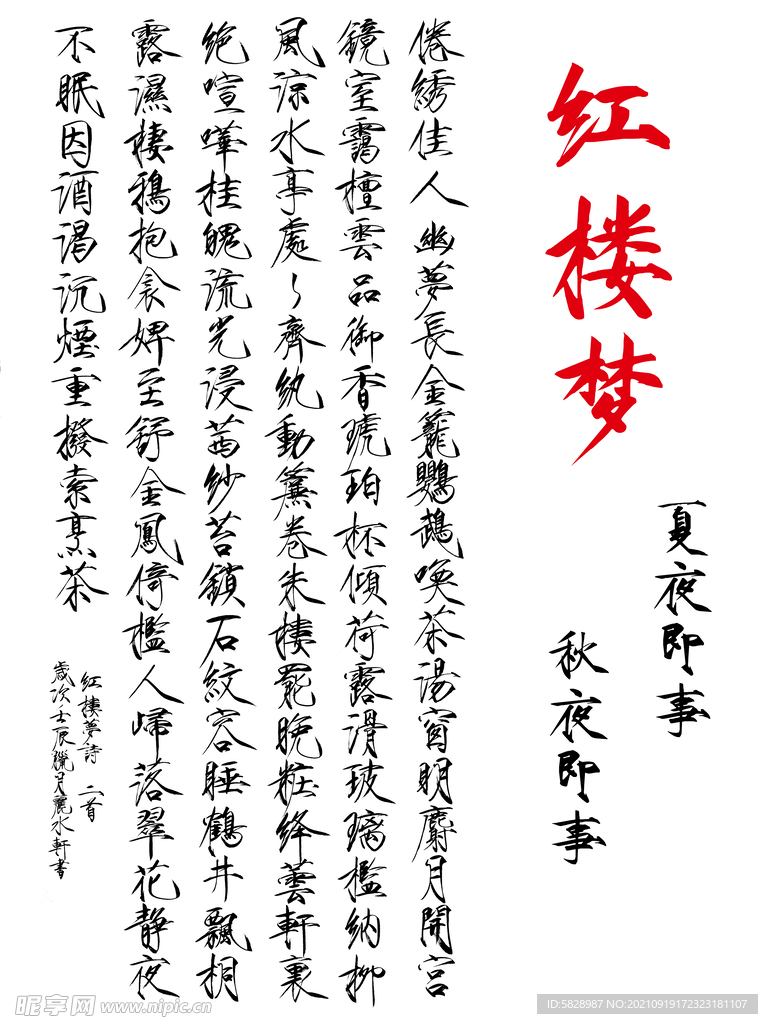 红楼梦
夏夜即事
秋夜即事
倦綉佳人幽夢長金籠鸚鵡喚茶湯窗明麝月開宮
鏡室靄檀雲品御香琥珀杯傾荷露滑玻璃檻納柳
風涼水亭處々齊紈動簾卷朱樓罷晚粧絳蕓軒裏
絶喧嘩桂魄流光浸茜紗苔鎖石紋容睡鶴井飄桐
露濕棲鴉抱衾婢至舒金鳳倚檻人歸落翠花静夜
不眠因酒渴沉煙重撥索烹茶
紅樓夢詩 二首
歲次壬辰臘月麗水軒書
昵享网 www.nipic.cn
ID:5828987 NO:20210919172323181107